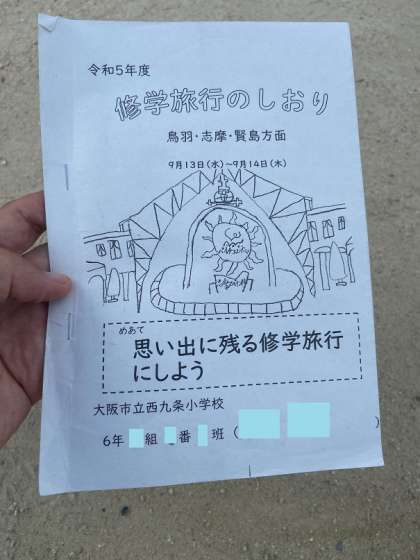 令和5年度
修学旅行のしおり
鳥羽・志摩・賢島方面
9月13日(水)~9月14日(木)
めあて
思い出に残る修学旅行
にしよう
大阪市立西九条小学校
6年 組 番 班 ( )